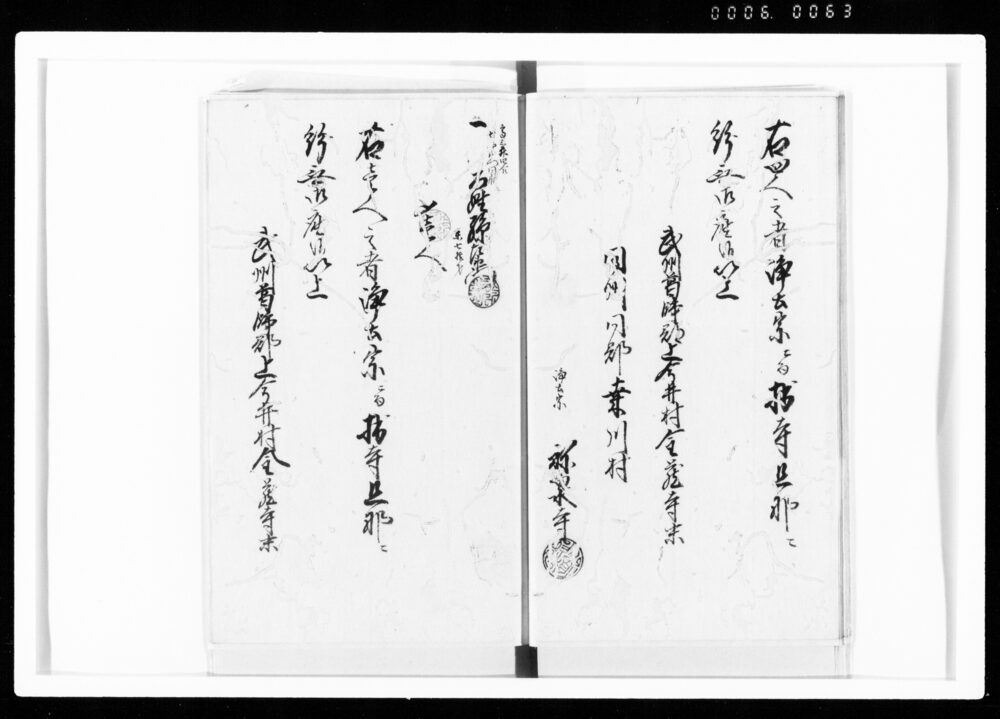 0006. 0063
右四人之者浄土宗ニ而拙寺旦那ニ
紛無御座候以上
武州葛飾郡上今井村金蔵寺末
同州同郡桑川村
浄土宗
寺
一
百姓
年七拾
壱人
右壱人之者浄土宗ニ而拙寺旦那ニ
紛無御座候以上
武州葛飾郡上今井村金蔵寺末